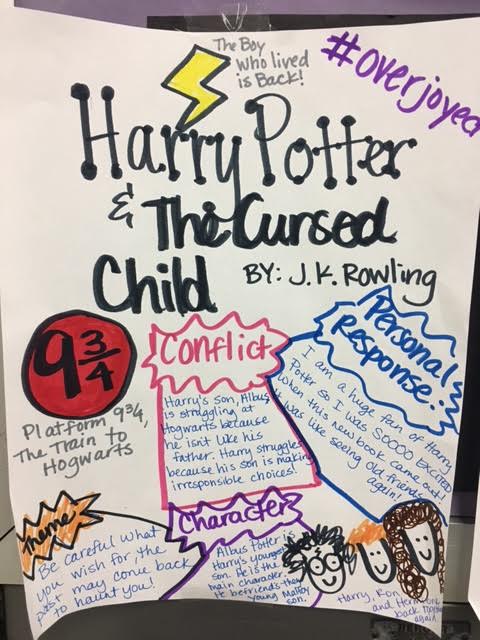 The Boy
Who lived
is Back!
#overjoyed
Harry Potter
& The Cursed
Child
BY: J.K. Rowling
9 3/4
Platform 9 3/4,
The Train to
Hogwarts
Conflict
Harry's son, Albus
is struggling at
Hogwarts because
he isn't like his
father. Harry struggles
because his son is making
irresponsible choices!
Personal
Response:
I am a huge fan of Harry
Potter so I was SOOOO EXCITED
when this new book came out!
It was like seeing old friends
again!
Theme
Be careful what
you wish for, the
past may come back
to haunt you!
Character
Albus Potter is
Harry's youngest
son. He is the
main character.
He befriends the
young Malfoy
son.
Harry, Ron,
and Hermione
back
again